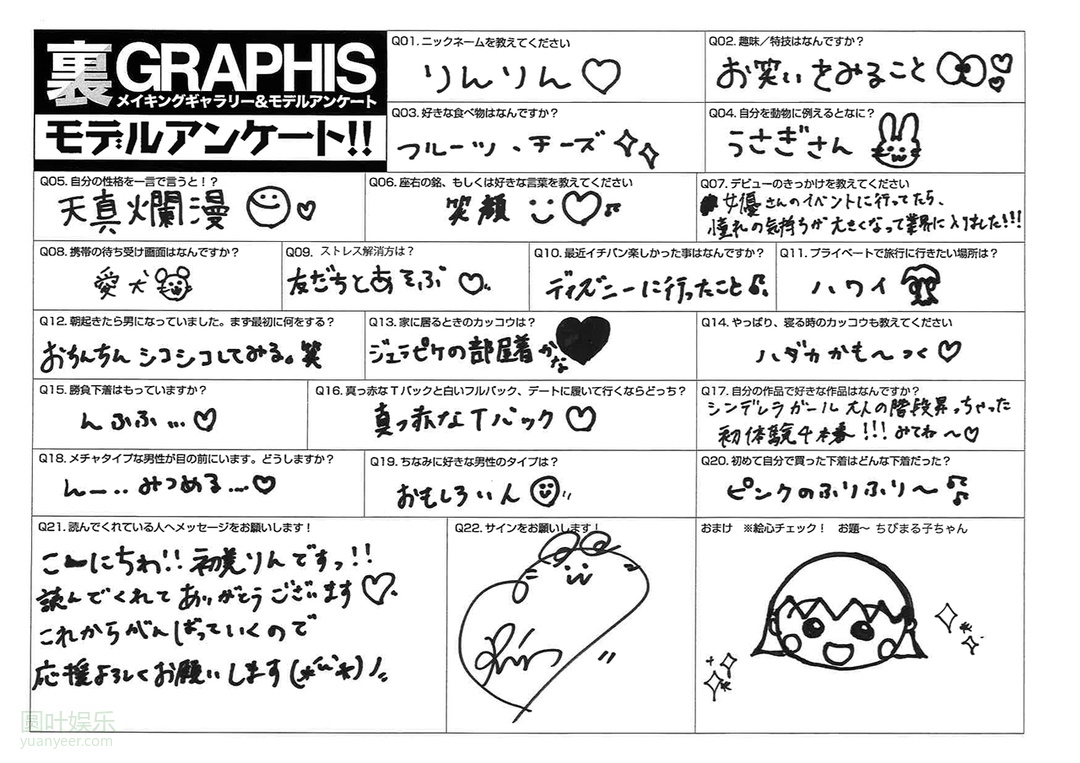 裏GRAPHIS
メイキングギャラリー&モデルアンケート
モデルアンケート!!
Q01. ニックネームを教えてください
りんりん♡
Q02. 趣味／特技はなんですか？
お笑いをみること
Q03. 好きな食べ物はなんですか？
フルーツ、チーズ
Q04. 自分を動物に例えるとなに？
うさぎさん
Q05. 自分の性格を一言で言うと！？
天真爛漫
Q06. 座右の銘、もしくは好きな言葉を教えてください
笑顔
Q07. デビューのきっかけを教えてください
女優さんのイベントに行ってたら、
憧れの気持ちが大きくなって業界に入りました!!!
Q08. 携帯の待ち受け画面はなんですか？
愛犬
Q09. ストレス解消方は？
友だちとあそぶ♡
Q10. 最近イチバン楽しかった事はなんですか？
ディズニーに行ったこと♪
Q11. プライベートで旅行に行きたい場所は？
ハワイ
Q12. 朝起きたら男になっていました。まず最初に何をする？
おちんちんシコシコしてみる。笑
Q13. 家に居るときのカッコウは？
ジェラピケの部屋着かな
Q14. やっぱり、寝る時のカッコウも教えてください
ハダカかも〜っく♡
Q15. 勝負下着はもっていますか？
んふふ…♡
Q16. 真っ赤なTバックと白いフルバック、デートに履いて行くならどっち？
真っ赤なTバック♡
Q17. 自分の作品で好きな作品はなんですか？
シンデレラガール大人の階段昇っちゃった
初体験4本番!!!みてね〜♡
Q18. メチャタイプな男性が目の前にいます。どうしますか？
んー‥みつめる…♡
Q19. ちなみに好きな男性のタイプは？
おもしろい人
Q20. 初めて自分で買った下着はどんな下着だった？
ピンクのふりふり〜♫
Q21. 読んでくれている人へメッセージをお願いします！
こーにちわ!!初美りんですっ!!
読んでくれてありがとうございます♡
これからがんばっていくので
応援よろしくお願いします(*^^*)ﾉ
Q22. サインをお願いします！
Rin
おまけ ※絵心チェック！ お題〜 ちびまる子ちゃん
圆叶娱乐
yuanyeer.com